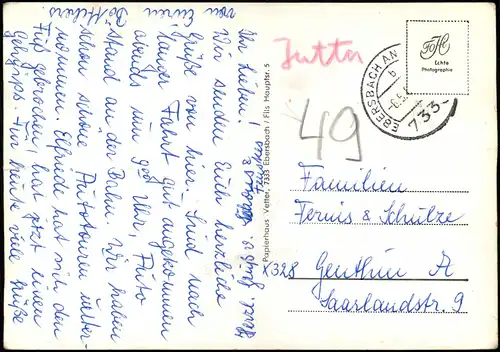 Ihr Lieben!
Wir senden Euch herzliche
Grüße von hier. Sind nach
Fahrt gut angekommen
abends um Uhr, Auto
stand an der Bahn. Wir haben
schon schöne Autotouren unter-
nommen. Elfriede hat sich den
Fuß gebrochen, hat jetzt einen
Gehgips. Für heute viele Grüße
von Euren
Jutta
49
Papierhaus Vetter, 7333 Ebersbach / Fils Hauptstr. 5
EBERSBACH AN
b
733
Echte
Photographie
Familien
& Schulze
X 328 Genthin A
Saarlandstr. 9